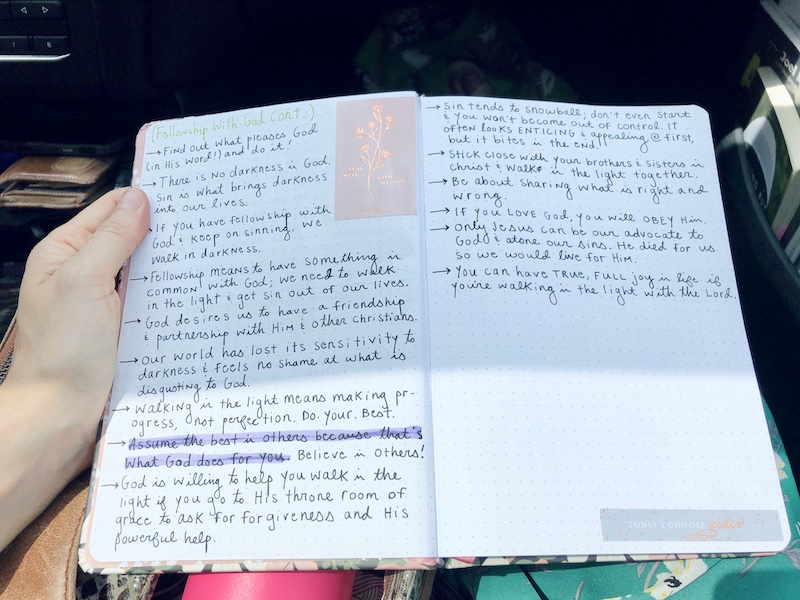 (Fellowship With God Cont..)
→ Find out what pleases God
(in His Word!) and do it!
→ There is no darkness in God.
Sin is what brings darkness
into our lives.
→ If you have fellowship with
God & keep on sinning, we
walk in darkness.
→ Fellowship means to have something in
common with God; we need to walk
in the light & get sin out of our lives.
→ God desires us to have a friendship
& partnership with Him & other Christians.
→ Our world has lost its sensitivity to
darkness & feels no shame at what is
disgusting to God.
→ Walking in the light means making pr-
ogress, not perfection. Do. Your. Best.
→ Assume the best in others because that's
what God does for you. Believe in others!
→ God is willing to help you walk in the
light if you go to His throne room of
grace to ask for forgiveness and His
powerful help.
IT IS WELL WITH MY SOUL
→ Sin tends to snowball; don't even start
& you won't become out of control. It
often looks ENTICING & appealing @ first,
but it bites in the end!
→ Stick close with your brothers & sisters in
Christ & walk in the light together.
→ Be about sharing what is right and
wrong.
→ If you LOVE God, you will OBEY Him.
→ Only Jesus can be our advocate to
God & atone our sins. He died for us
so we would live for Him.
→ You can have TRUE, FULL joy in life if
you're walking in the light with the Lord.
TODAY I CHOOSE grace
Joel
8